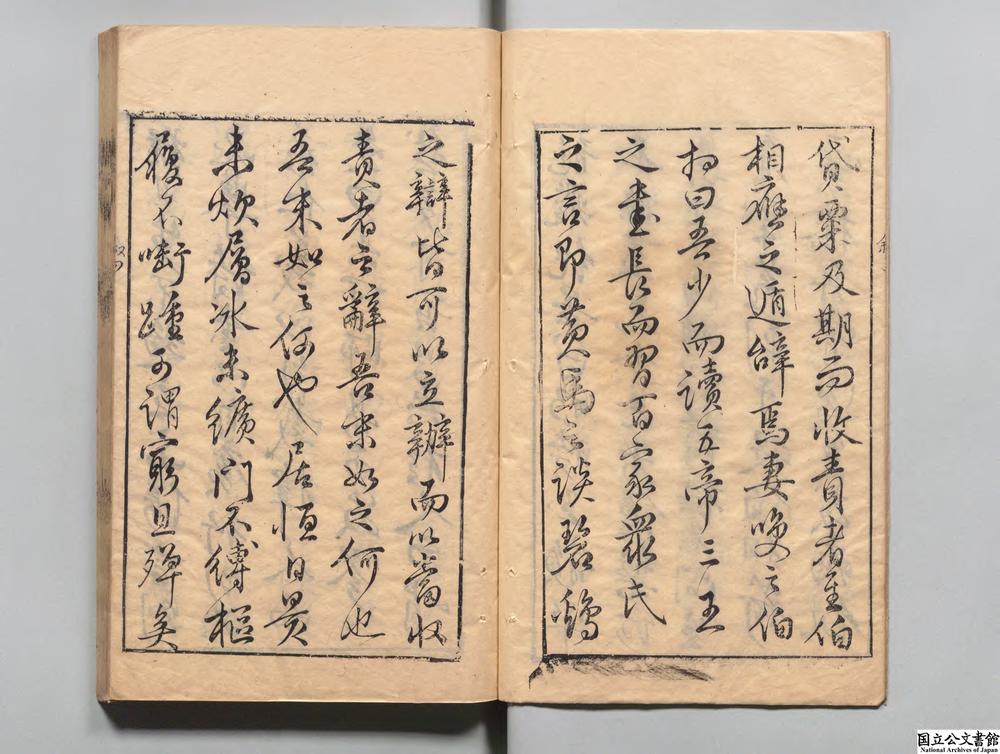 貸粟及期而收責者至伯
相應之遁辭焉妻唉之伯
相曰吾少而讀五帝三王
之書長而習百家衆氏
之言即黃馬之談碧鷄
之辯皆可以立辦而以當收
責者之辭吾未如之何也
吾未如之何也居恒日昃
未炊層冰未纊門不縛樞
履不 踵可謂窮且殫矣
国立公文書館
National Archives of Japan